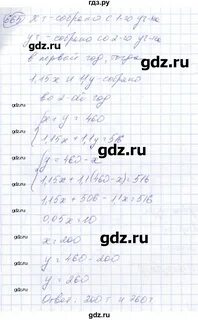 665 x т - собрано с 1-го уч-ка
y т - собрано со 2-го уч-ка
в первый год, тогда
1,15x и 1,1y - собрано
во 2-ой год
{x + y = 460
1,15x + 1,1y = 516
{y = 460 - x
1,15x + 1,1(460 - x) = 516
1,15x + 506 - 1,1x = 516
0,05x = 10
x = 200
y = 460 - 200
y = 260
Ответ: 200 т и 260 т